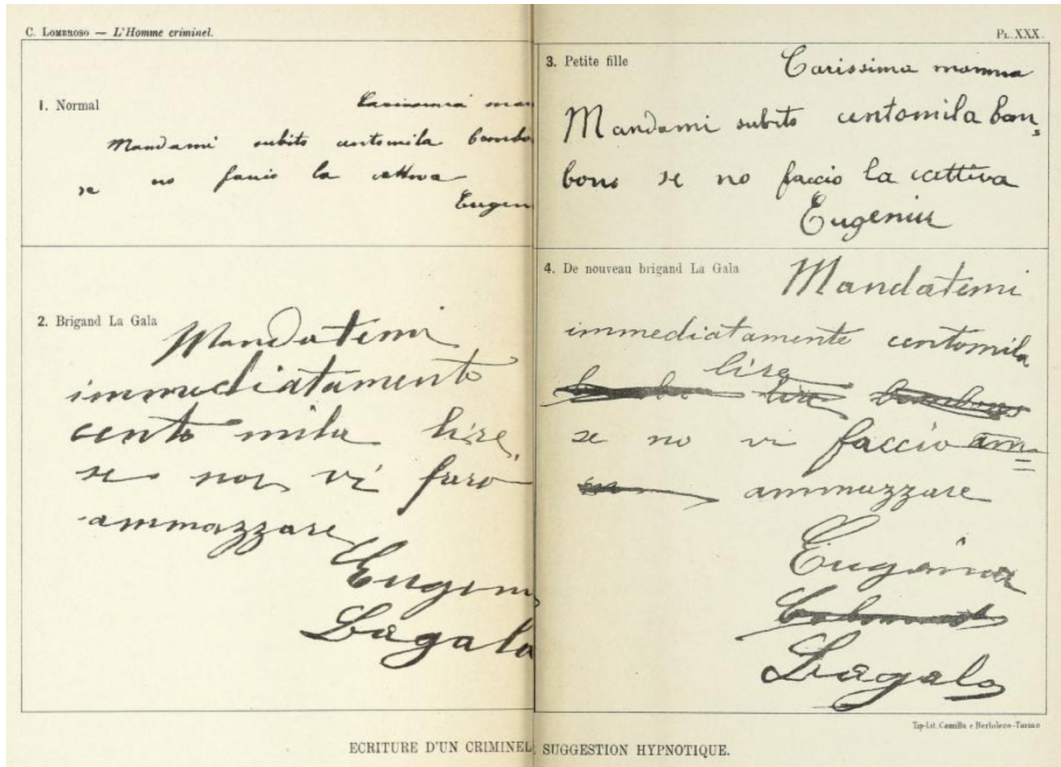 C. LOMBROSO — L'Homme criminel.
PL. XXX.
1. Normal
Carissima mam
Mandami subito centomila bombo
se no faccio la cattiva
Eugen
2. Brigand La Gala
Mandatemi
immediatamente
cento mila lire,
se non vi farò
ammazzare
Eugeni
Lagala
3. Petite fille
Carissima mamma
Mandami subito centomila bon,
bons se no faccio la cattiva
Eugeniu
4. De nouveau brigand La Gala
Mandatemi
immediatamente centomila
lise
lire
se no vi faccio am=
ammazzare
Eugenia
Lagala
Tip-Lit. Camilla e Bertolero-Torino
ECRITURE D'UN CRIMINEL, SUGGESTION HYPNOTIQUE.